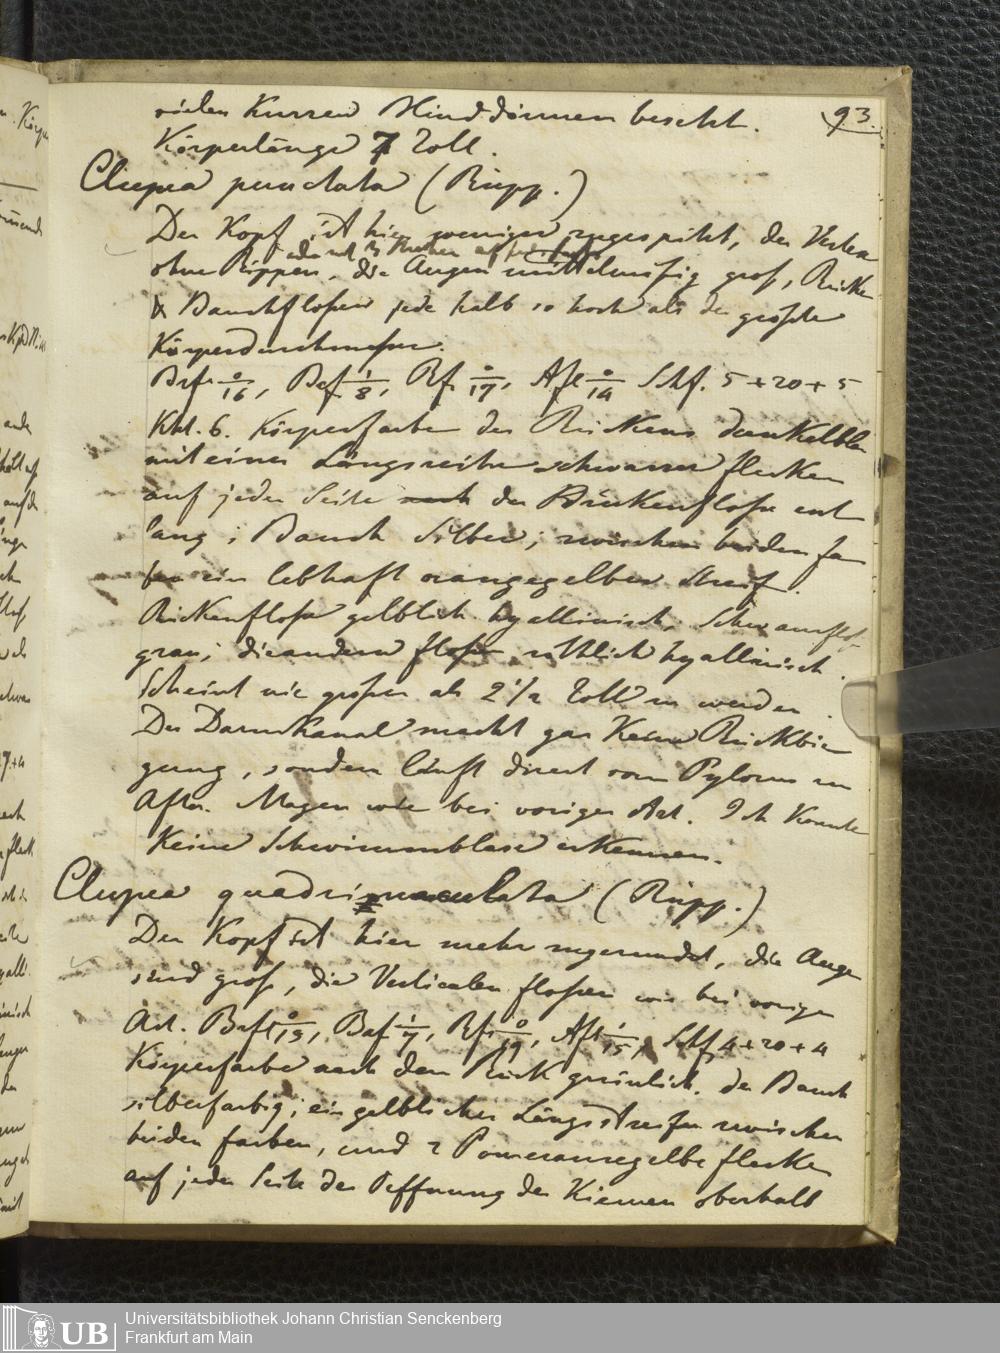 93
vielen Kurzen Hinddörnen besetzt.
Körperlänge 7 Zoll.
Clupea punctata (Rüpp.)
Der Kopf ist hier weniger zugespitzt, der Vorder
ohne Rippen, die Augen mittelmäsig groß, Rücken
& Bauchfloßen jede halb so hoch als der größte
Körperdurchmeßer.
Brfl 0/16, Baf 1/8, Rf. 0/17, Afl 0/14 Schf. 5+20+5
Kht. 6. Körperfarbe des Rückens dunkelblau
mit einer Längsreihe schwarzer flecken
auf jeder Seite der Rückenfloße ent
lang; Bauch Silber; zwischen beiden fa
ben ein lebhaft orangegelber Streif.
Rückenfloße gelblich hyallinisch, Schwanzflos
grau; die andern floßen röthlich hyallinisch.
Scheint nie großer als 2 1/2 Zoll zu werden.
Der Darmkanal macht gar Keine Rückbie
gung, sondern läuft direct vom Pylorus zu
After. Magen wie bei voriger Art. Ich Konnte
Keine Schwimmblase erkennen.
Clupea quadrimaculata (Rüpp.)
Der Kopf ist hier mehr zugerundet, die Augen
sind groß, die Verticalen floßen wie bei voriger
Art. Brfl 0/13, Baf 1/7, Rf 0/19, Afl 1/15, Schf 4+20+4
Körperfarbe nach dem Rück grünlich, der Bauch
silberfarbig; ein gelblicher Längsstreifen zwischen
beiden farben, und 2 Pomeranzegelbe flecken
auf jeder Seite der Oeffnung der Kiemen oberhalb
UB
Universitätsbibliothek Johann Christian Senckenberg
Frankfurt am Main